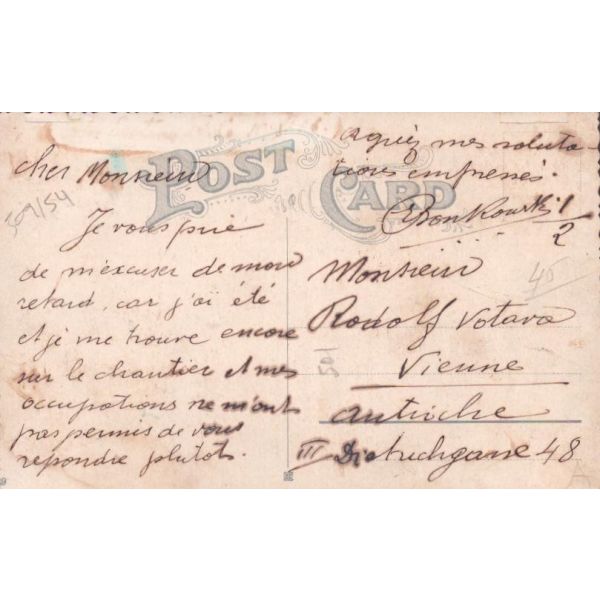 POST CARD
cher Monsieur
Je vous prie
de m'excuser de mon
retard, car j'ai été
et je me trouve encore
sur le chantier et mes
occupations ne m'ont
pas permis de vous
repondre plutot.
agréez mes saluta-
tions empressés.
1/2
Monsieur
Rodolf Votava
Vienne
Autriche
III Dietrichgasse 48
509/54
501